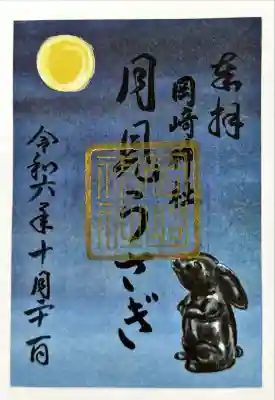 奉拝
岡崎神社
月見うさぎ
令和六年十月二十一日